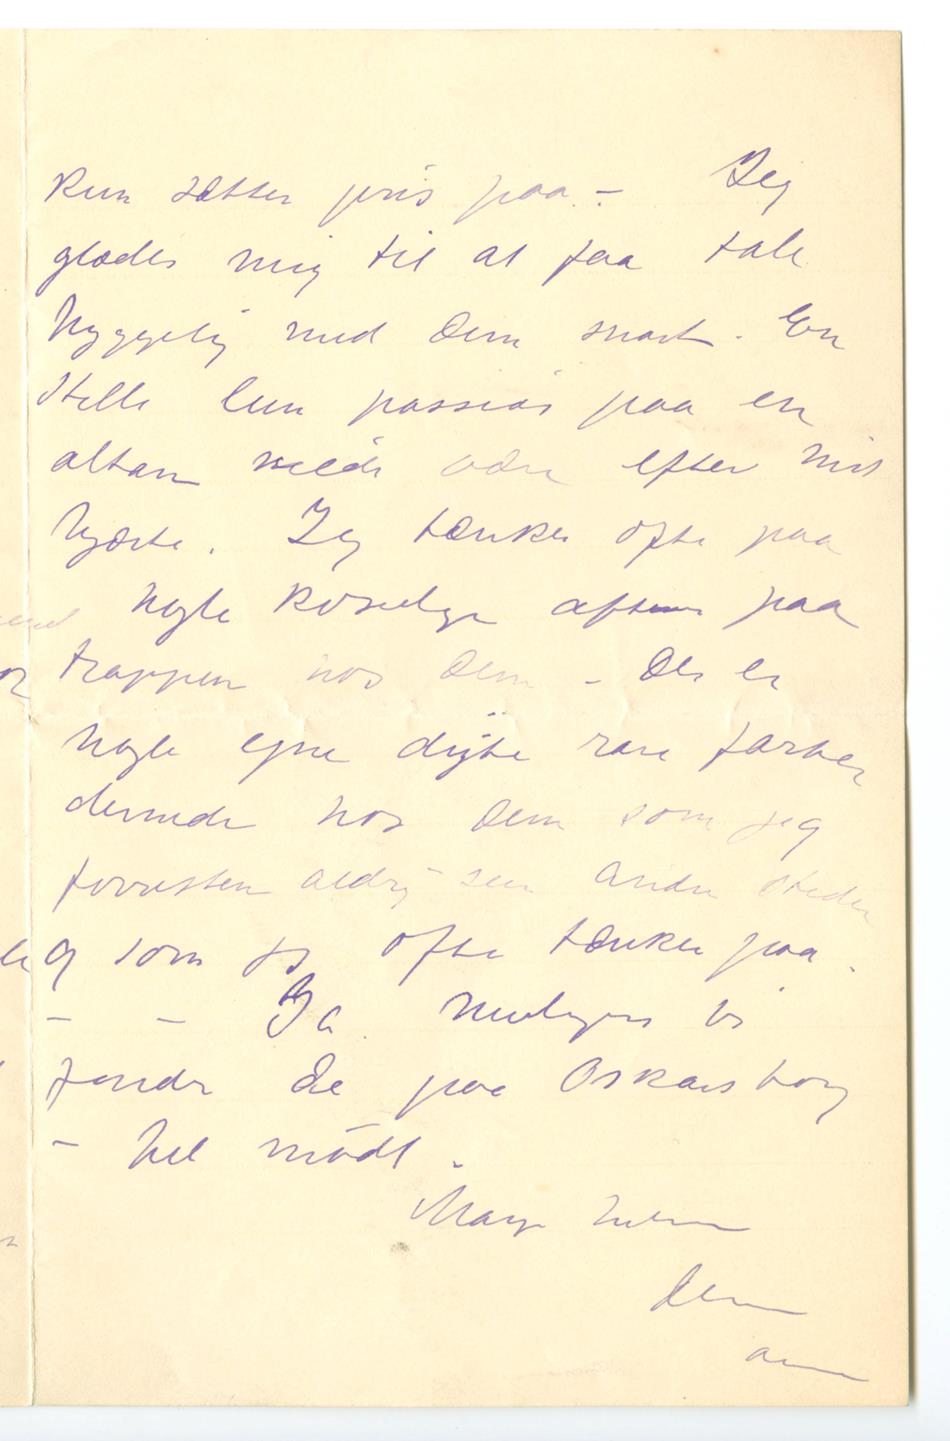 kun sætter pris paa. – Jeg
glædes mig til at faa tale
hyggelig med Dem snart. En
stille lun passiar paa en
altan vilde være efter mit
hjærte. Jeg tænker ofte paa
nogle koselige aftener paa
trappen hos Dem – Der er
nogle egne dybe rare farver
dernede hos Dem som jeg
forresten aldrig seer andre steder
og som jeg ofte tænker paa.
– – Ja. muligens vi
finder De paa Oskarsborg
– Vel mødt.
Mange
Deres